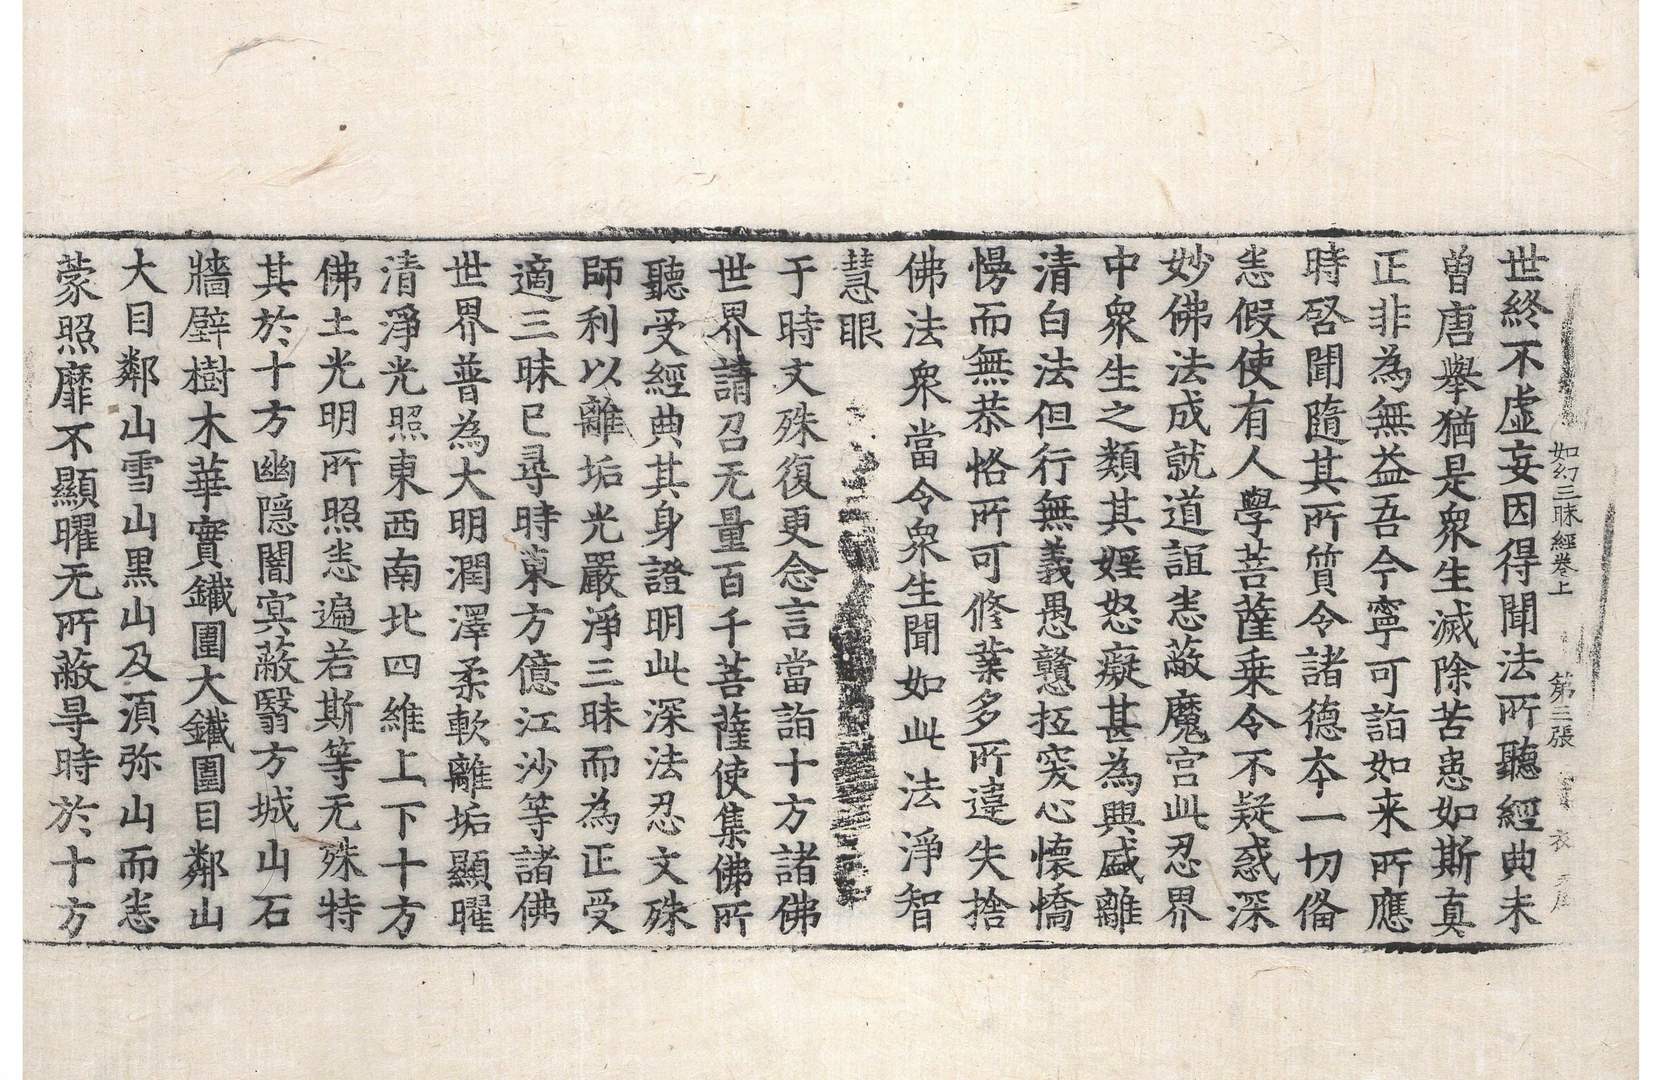 如幻三昧經卷上　第三張　衣
世終不虛妄因得聞法所聽經典未
曾唐舉猶是衆生滅除苦患如斯真
正非為無益吾今寧可詣如来所應
時啓聞隨其所質令諸德夲一切俻
恙假使有人學菩薩乗令不疑惑深
妙佛法成就道誼恙蔽魔宮此忍界
中衆生之類其婬怒癡甚為興盛離
清白法但行無義愚戇抂突心懷憍
慢而無恭恪所可修業多所違失捨
佛法衆當令衆生聞如此法淨智
慧眼
于時文殊復更念言當詣十方諸佛
世界請召无量百千菩薩使集佛所
聽受經典其身證明此深法忍文殊
師利以離垢光嚴淨三昧而為正受
適三昧已尋時東方億江沙等諸佛
世界普為大明潤澤柔軟離垢顯曜
清淨光照東西南北四維上下十方
佛土光明所照恙遍若斯等无殊特
其於十方幽隠闇冥蔽翳方城山石
牆壁樹木華實鐵圍大鐵圍目鄰山
大目鄰山雪山黒山及湏弥山而恙
蒙照靡不顯曜无所蔽㝵時於十方